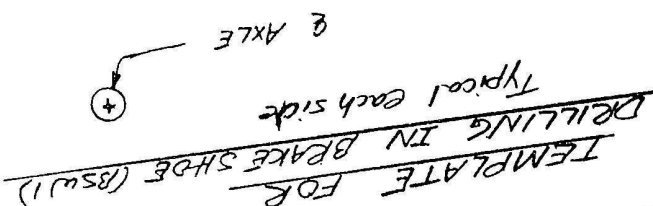 TEMPLATE FOR
DRILLING IN BRAKE SHOE (BSW11)
Typical each side
℄ AXLE